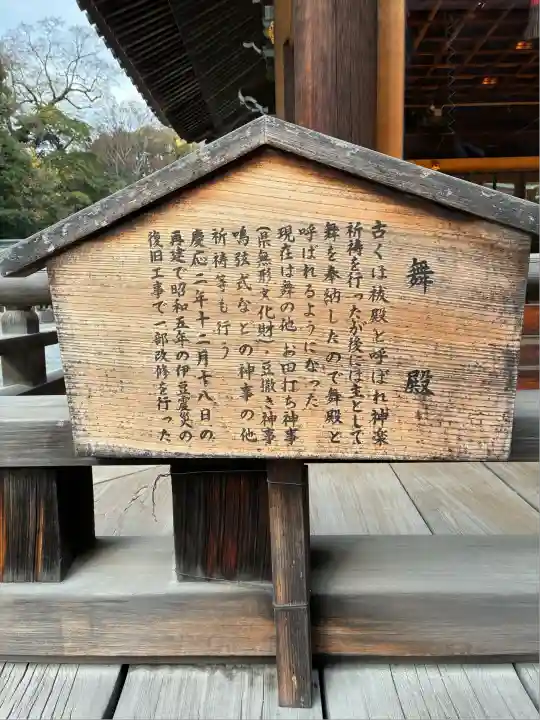 舞殿
古くは祓殿と呼ばれ神楽
祈祷を行ったが後には主として
舞を奉納したので舞殿と
呼ばれるようになった
現在は舞の他、お田打ち神事
(県無形文化財)・豆撒き神事
鳴弦式などの神事の他
祈祷等も行う
慶応二年十二月十八日の
再建で昭和五年の伊豆震災の
復旧工事で一部改修を行った